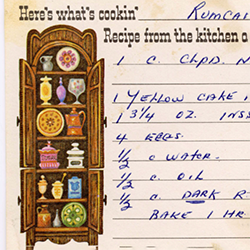 Here's what's cookin' RUMCA
Recipe from the kitchen o
1 c. CHPD. N
1 YELLOW CAKE
1 3/4 OZ. INS
4 EGGS.
1/2 c WATER.
1/2 c OIL
1/2 c DARK R
BAKE 1 HR